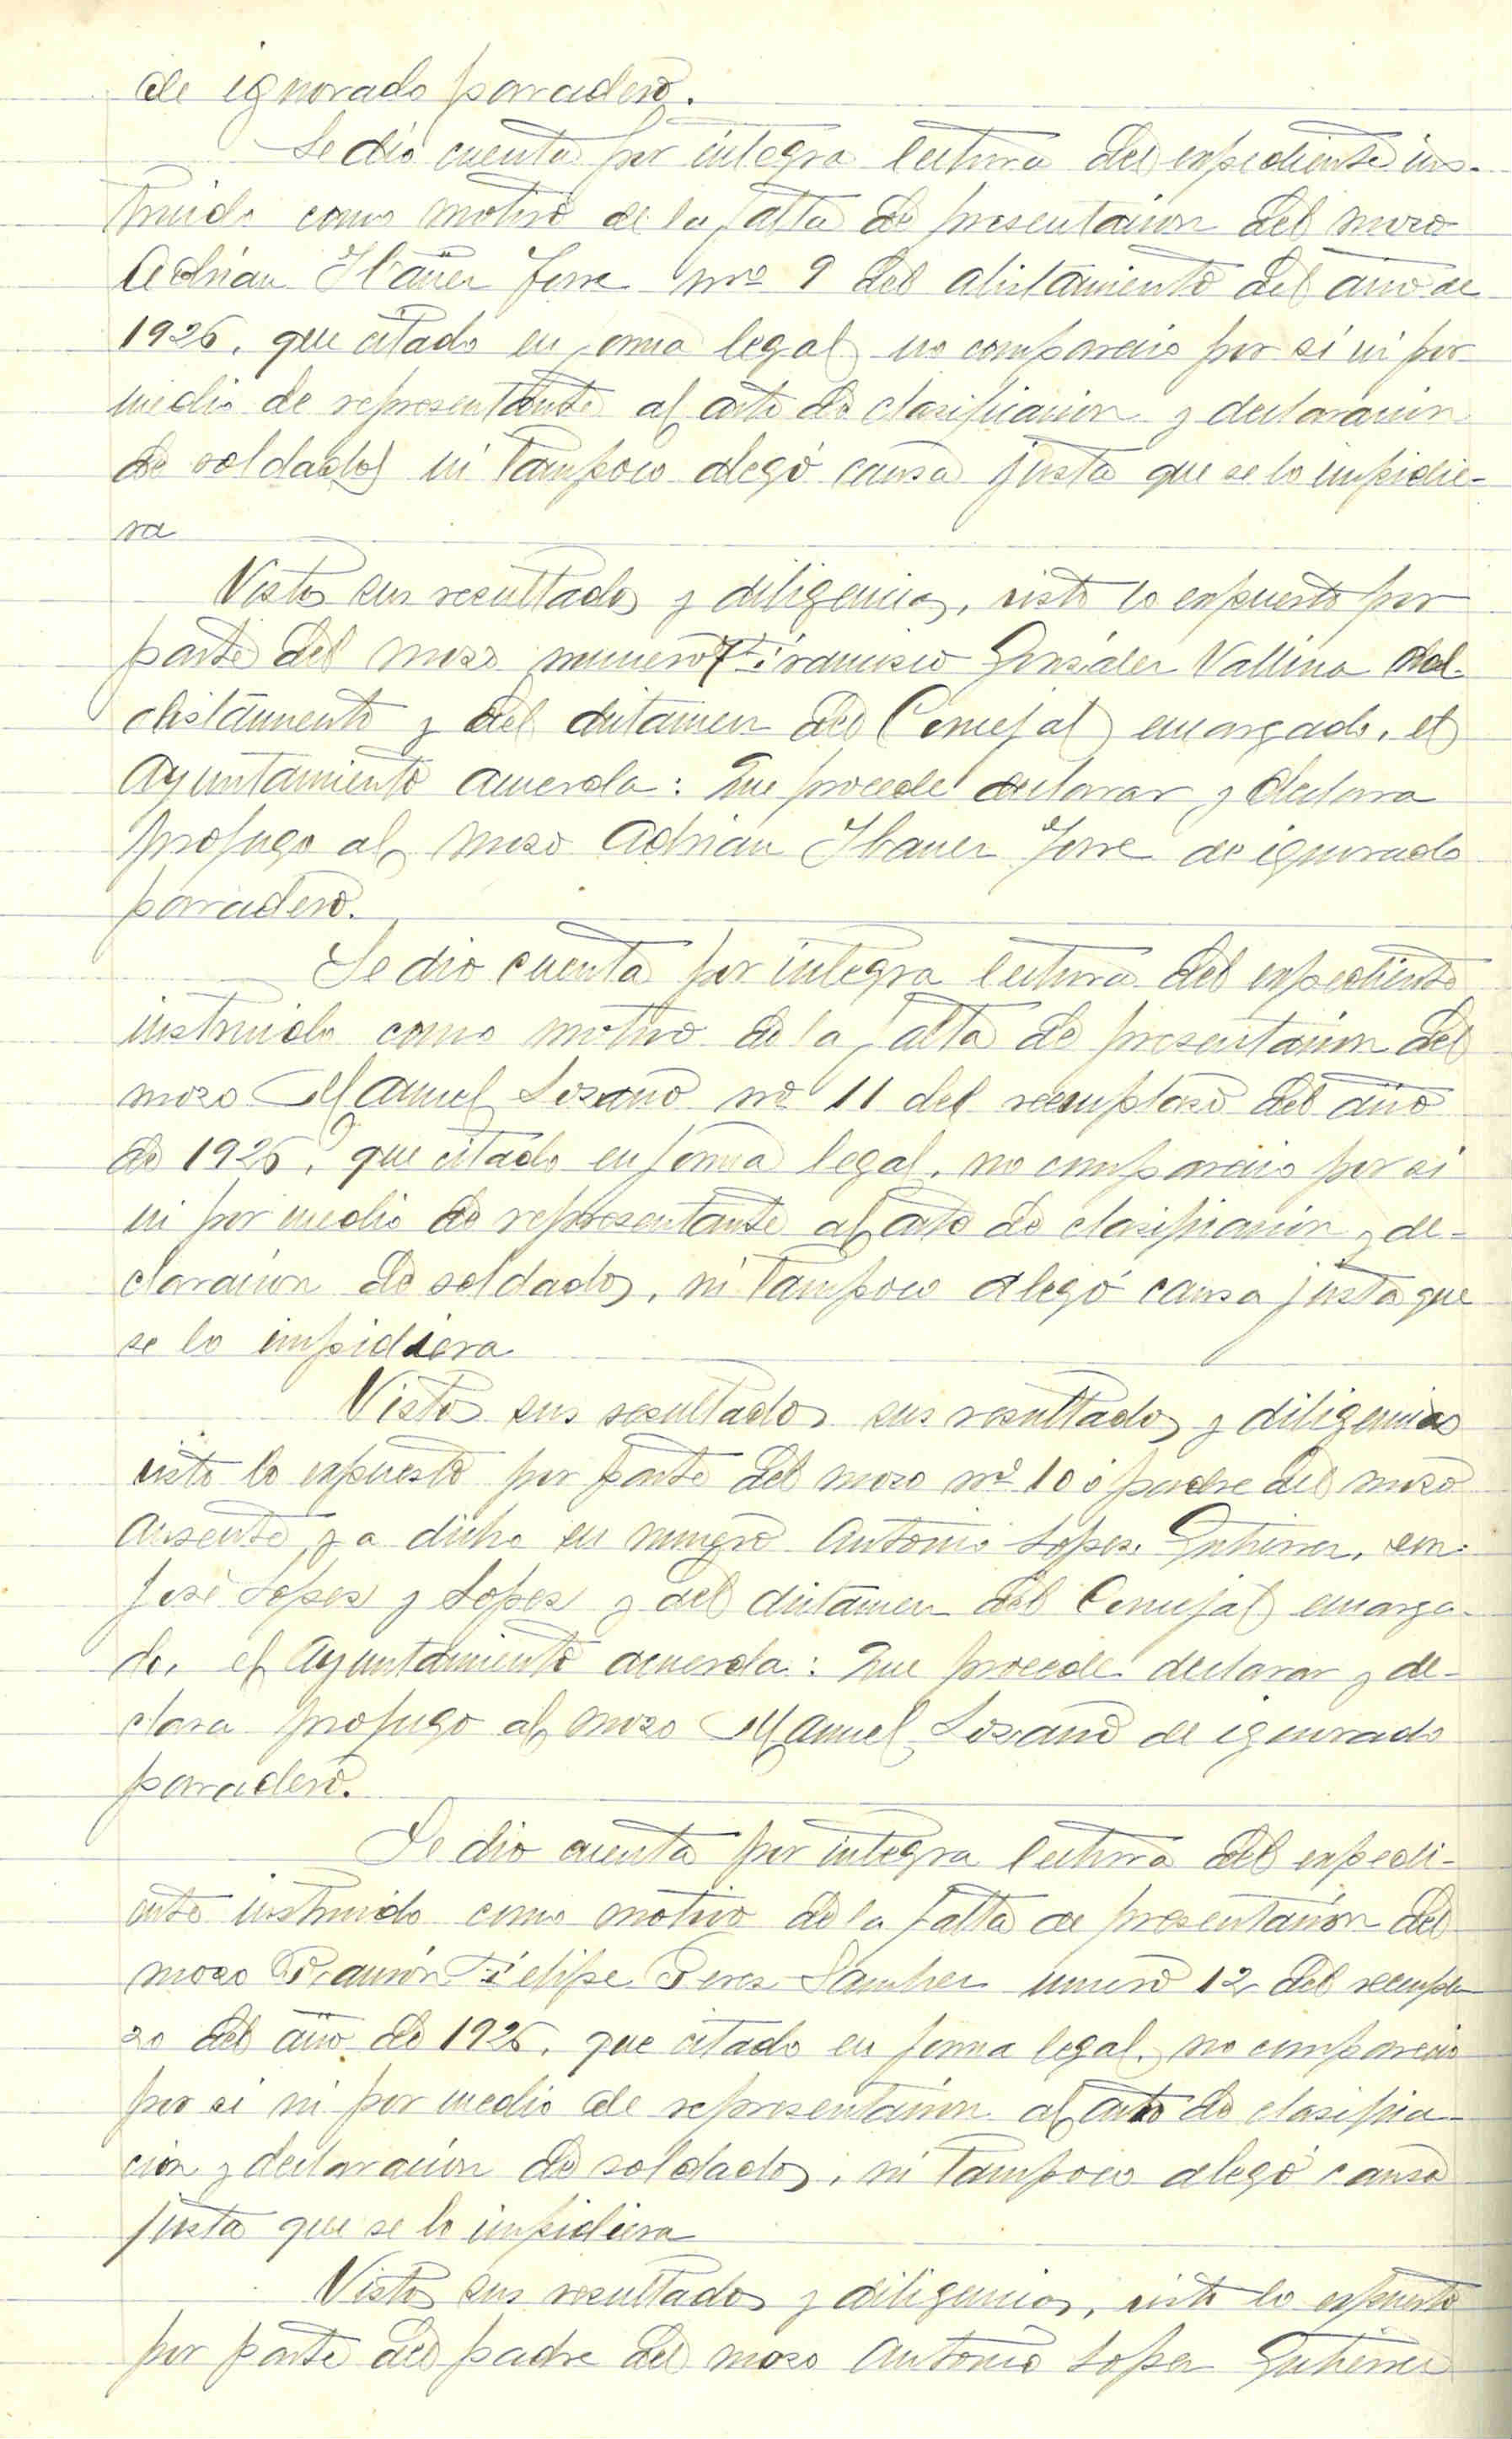 de ignorado paradero.
Se dió cuenta por integra lectura del expediente ins-
truido como motivo de la falta de presentacion del mozo
Adrian Ibañez Jorre nº 9 del alistamiento del año de
1926, que citado en forma legal no compareció por si ni por
medio de representante al acto de clasificacion y declaracion
de soldados ni tampoco alegó causa justa que se lo impidie-
ra
Vistos sus resultados y diligencias, visto lo expuesto por
parte del mozo numero Francisco Gonzalez Vallina del
alistamiento y del dictamen del Concejal encargado, el
Ayuntamiento acuerda: Que procede declarar y declara
profugo al mozo Adrian Ibañez Jorre de ignorado
paradero.
Se dio cuenta por integra lectura del expediente
instruido como motivo de la falta de presentacion del
mozo Manuel Lozano nº 11 del reemplazo del año
de 1926, que citado en forma legal, no compareció por si
ni por medio de representante al acto de clasificacion y de-
claracion de soldados, ni tampoco alegó causa justa que
se lo impidiera
Vistos sus resultados sus resultados y diligencias
visto lo expuesto por parte del mozo nº 10 ó padre del mozo
ausente y a dicho en numero Antonio Lopez Gutierrez, con
José Lopez y Lopez y del dictamen del Concejal encarga-
do, el Ayuntamiento acuerda: Que procede declarar y de-
clara profugo al mozo Manuel Lozano de ignorado
paradero.
Se dio cuenta por integra lectura del expedi-
ente instruido como motivo de la falta de presentacion del
mozo Ramón Felipe Perez Sanchez numero 12 del reempla-
zo del año de 1926, que citado en forma legal, no compareció
por si ni por medio de representacion al acto de clasifica-
cion y declaracion de soldados, ni tampoco alegó causa
justa que se lo impidiera
Vistos sus resultados y diligencias, visto lo expuesto
por parte del padre del mozo Antonio Lopez Gutierrez